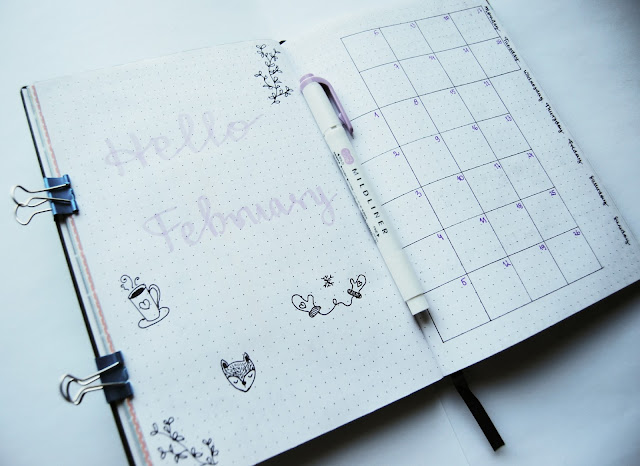 Hello
February
MILDLINER
6 13 20 27 Monday
7 14 21 28 Tuesday
1 8 15 22 Wednesday
2 9 16 23 Thursday
3 10 17 24 Friday
4 11 18 25 Saturday
5 12 19 26 Sunday